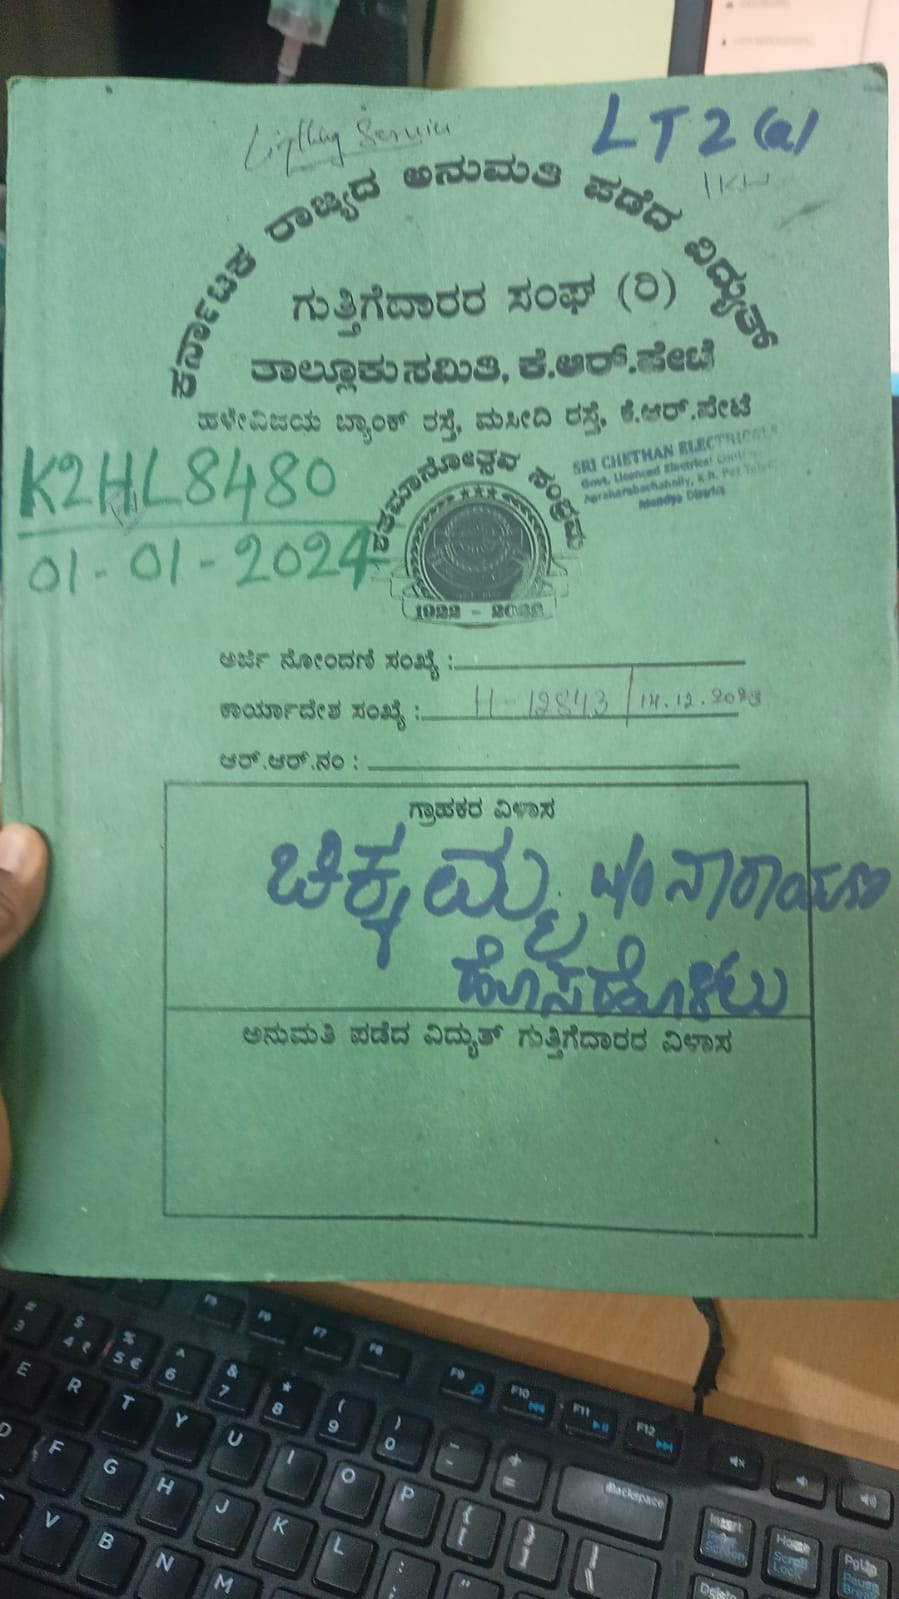 Lighting Service
LT2(a)
1KW
ಕರ್ನಾಟಕ ರಾಜ್ಯದ ಅನುಮತಿ ಪಡೆದ ವಿದ್ಯುತ್
ಗುತ್ತಿಗೆದಾರರ ಸಂಘ (ರಿ)
ತಾಲ್ಲೂಕು ಸಮಿತಿ, ಕೆ.ಆರ್.ಪೇಟೆ
ಹಳೇವಿಜಯ ಬ್ಯಾಂಕ್ ರಸ್ತೆ, ಮಸೀದಿ ರಸ್ತೆ, ಕೆ.ಆರ್.ಪೇಟೆ
SRI CHETHAN ELECTRICALS
Govt. Licenced Electrical
Agraharabachahally, K.R. Pet
Mandya District
K2HL8480
01-01-2024
ಶತಮಾನೋತ್ಸವ ಸಂಭ್ರಮ
1922 - 2022
ಅರ್ಜಿ ನೋಂದಣಿ ಸಂಖ್ಯೆ :
ಕಾರ್ಯಾದೇಶ ಸಂಖ್ಯೆ : H-12843/14.12.2023
ಆರ್.ಆರ್.ನಂ :
ಗ್ರಾಹಕರ ವಿಳಾಸ
ಚಿಕ್ಕಮ್ಮ w/o ನಾರಾಯಣ
ಹೊಸಹೊಳಲು
ಅನುಮತಿ ಪಡೆದ ವಿದ್ಯುತ್ ಗುತ್ತಿಗೆದಾರರ ವಿಳಾಸ